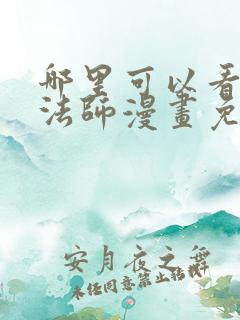 哪里可以看
法師漫畫免
安月夜之舞
未经同意禁止转载